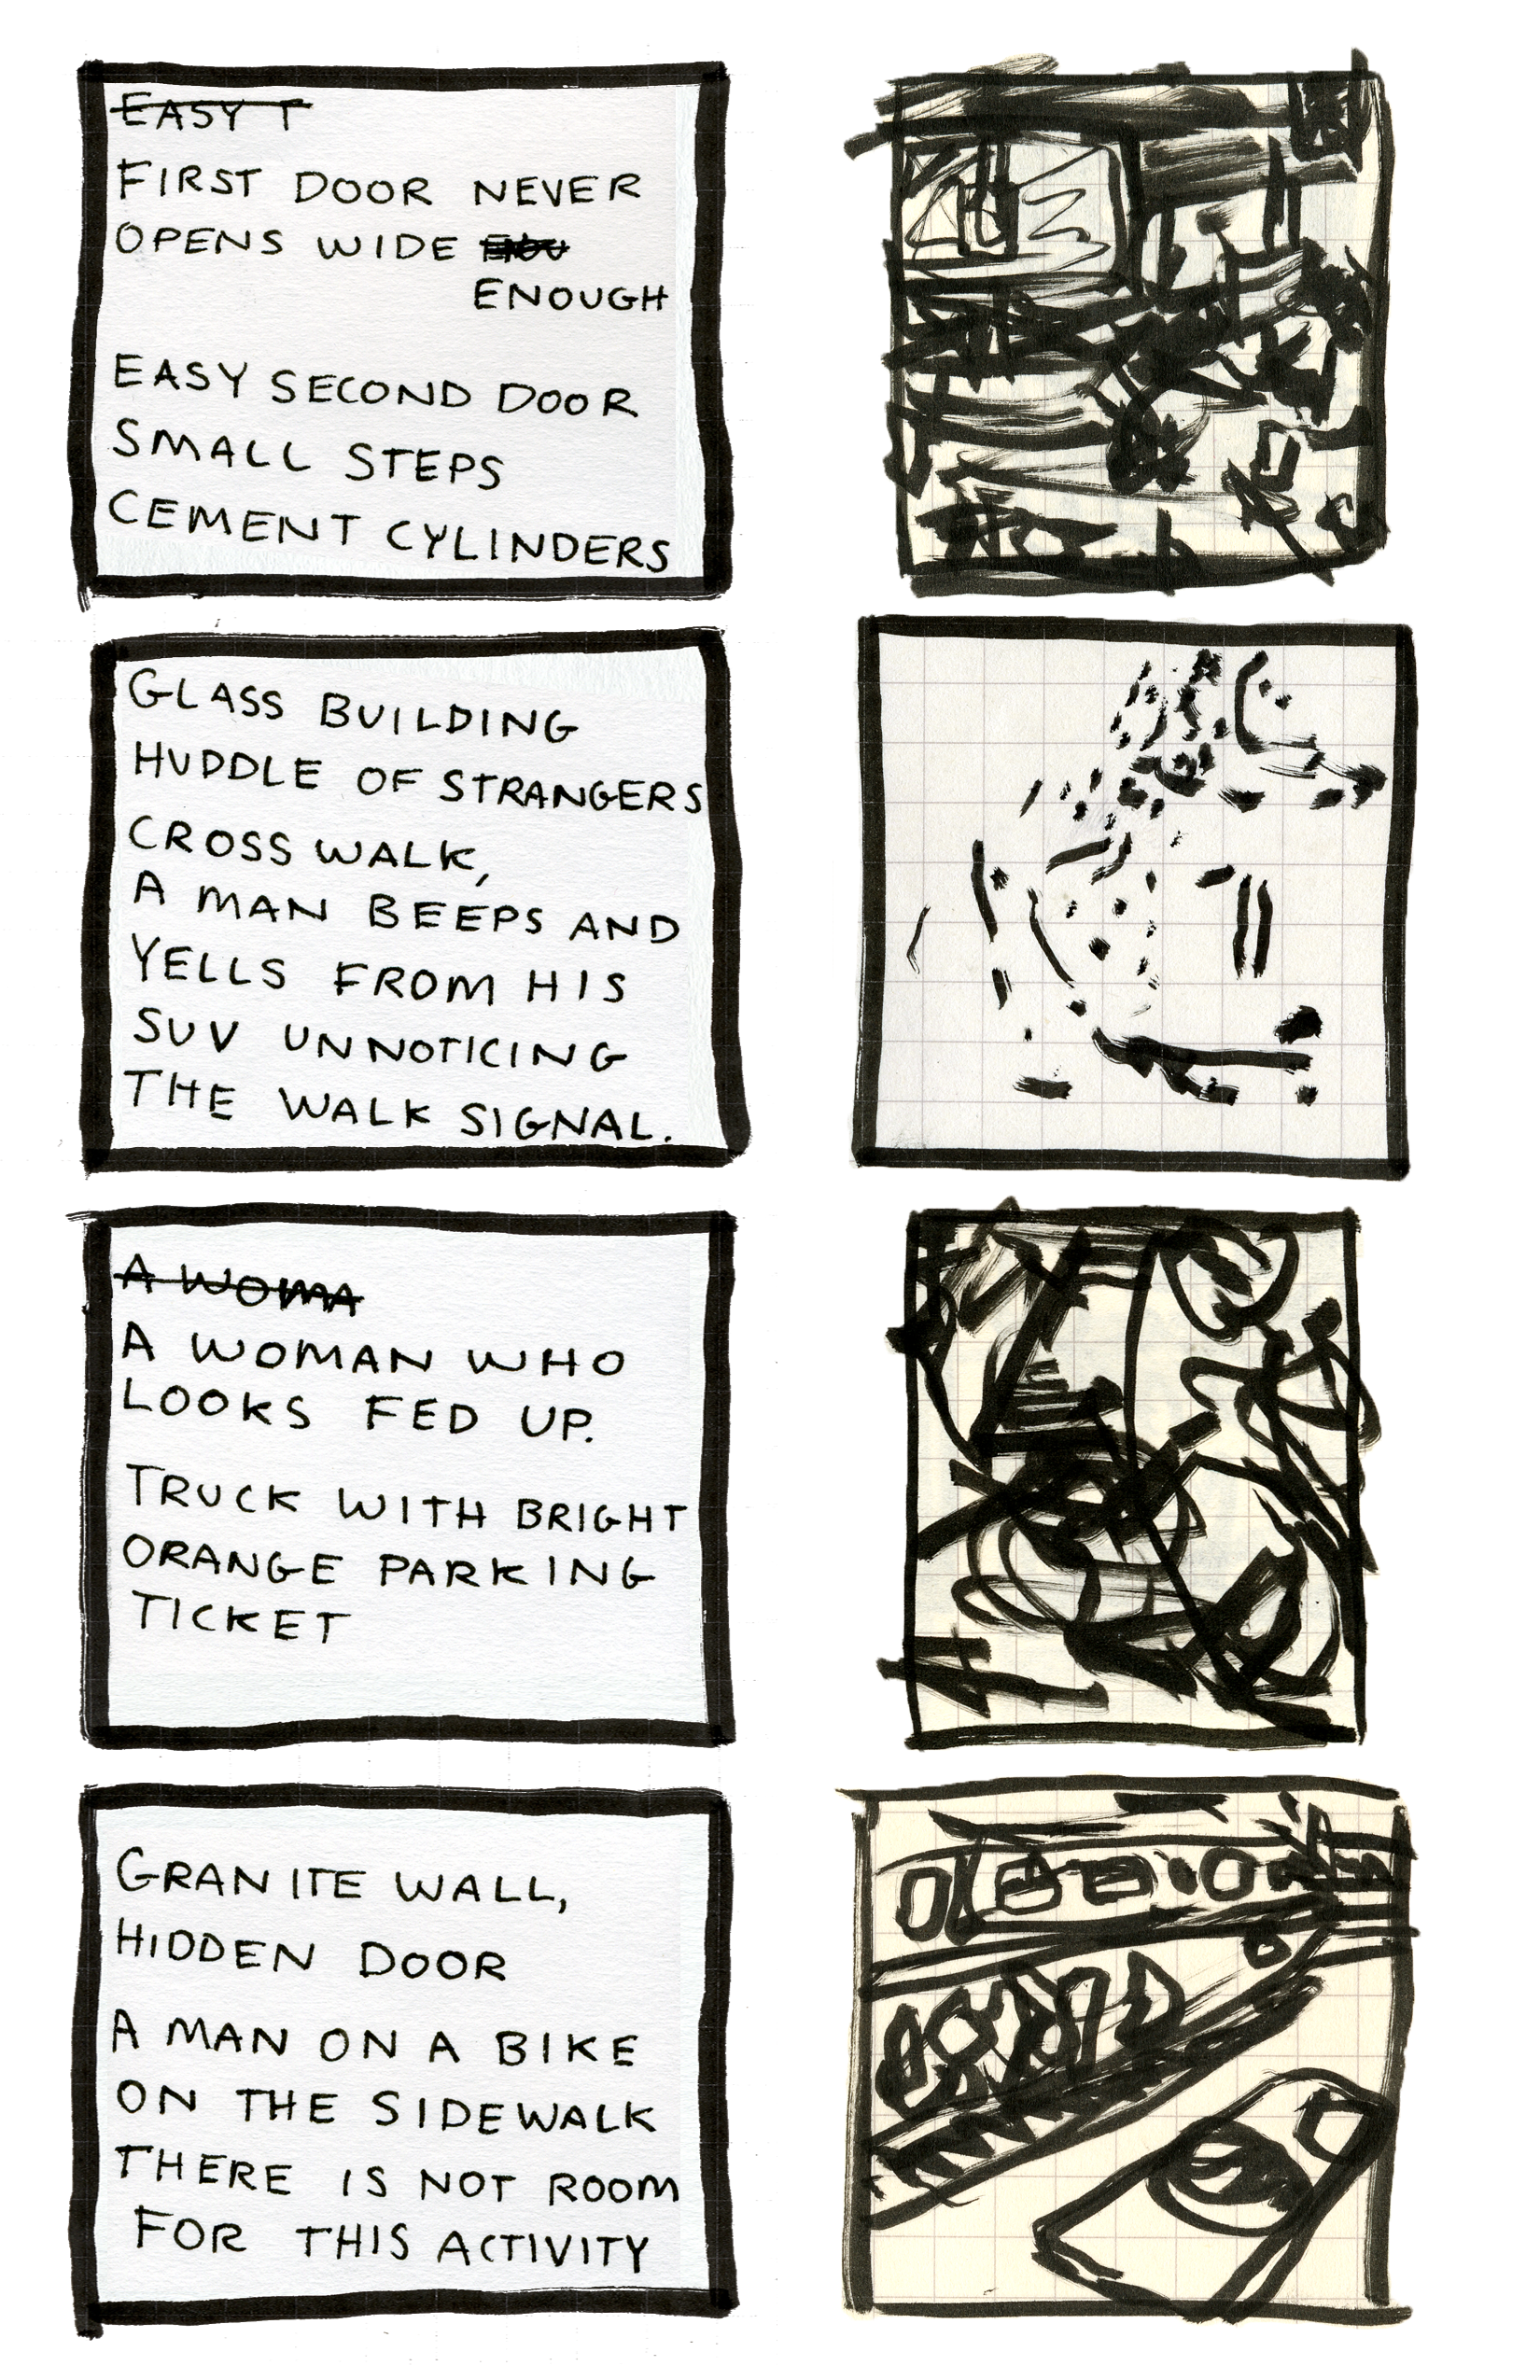 EASY T
FIRST DOOR NEVER
OPENS WIDE
ENOUGH
EASY SECOND DOOR
SMALL STEPS
CEMENT CYLINDERS
GLASS BUILDING
HUDDLE OF STRANGERS
CROSS WALK,
A MAN BEEPS AND
YELLS FROM HIS
SUV UNNOTICING
THE WALK SIGNAL.
A WOMA
A WOMAN WHO
LOOKS FED UP.
TRUCK WITH BRIGHT
ORANGE PARKING
TICKET
GRANITE WALL,
HIDDEN DOOR
A MAN ON A BIKE
ON THE SIDEWALK
THERE IS NOT ROOM
FOR THIS ACTIVITY